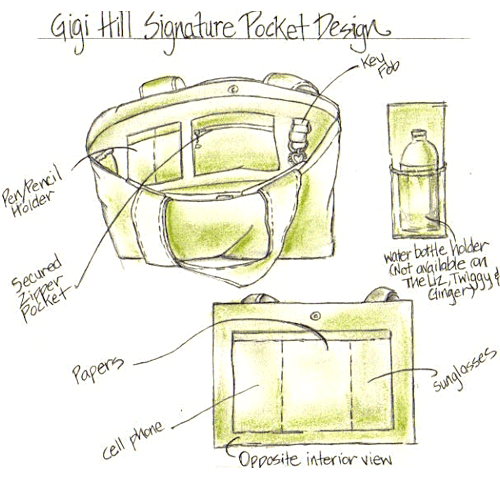 Gigi Hill Signature Pocket Design
Key
Fob
Pen/Pencil
Holder
Secured
Zipper
Pocket
water bottle holder
(Not available on
The Liz, Twiggy &
Ginger)
Papers
cell phone
sunglasses
Opposite interior view